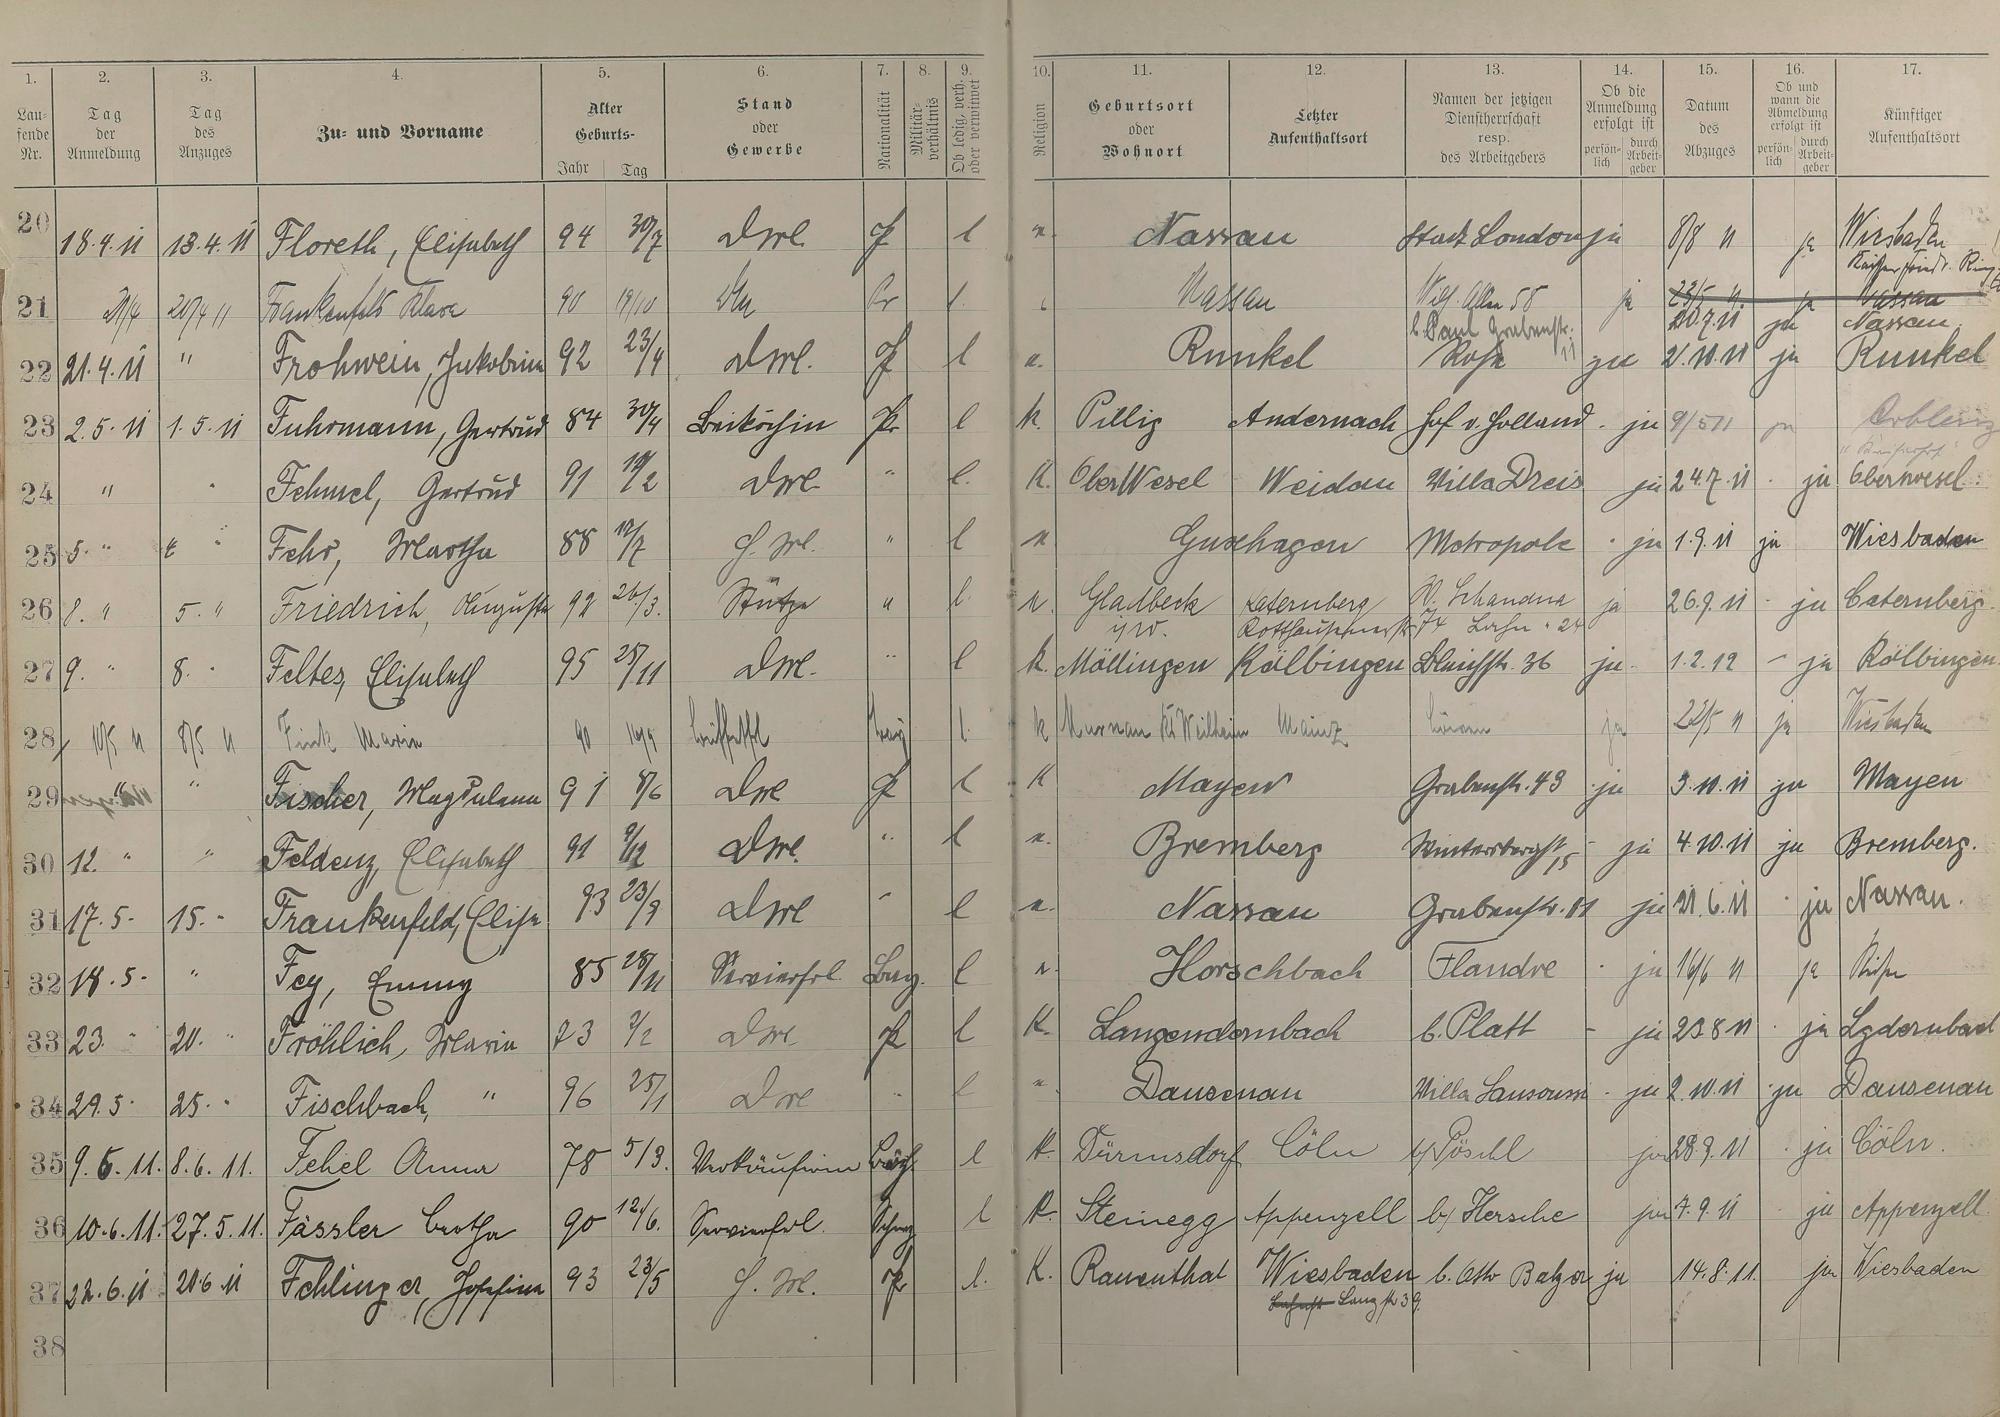 1. 2. 3. 4. 5. 6. 7. 8. 9. 10. 11. 12. 13. 14. 15. 16. 17.
Laufende Nr. Tag der Anmeldung Tag des Anzuges Zu- und Vorname Alter Geburts- Jahr Tag Stand oder Gewerbe Nationalität Militärverhältnis Ob ledig, verh. oder verwitwet Religion Geburtsort oder Wohnort Letzter Aufenthaltsort Namen der jetzigen Dienstherrschaft resp. des Arbeitgebers Ob die Anmeldung erfolgt ist persönlich durch Arbeitgeber Datum des Abzuges Ob und wann die Abmeldung erfolgt ist persönlich durch Arbeitgeber Künftiger Aufenthaltsort
20 18.4.11 13.4.11 Floreth, Elisabeth 94 30/7 Dml. P l Nassau Stadt London ja 8/8 11 ja Wiesbaden
Kaiser Friedr. Ring
21 21/4 20/4 11 Frankenfeld Klara 90 19/10 Pr l. Nassau Wilh. Allee 58 ja 23/5 11. ja Nassau
b. Paul Grabenstr. 11 20.7.11 ja Nassau
22 21.4.11 " Frohwein, Jakobine 92 23/4 Dml. P l Runkel 2.10.11 ja Runkel
23 2.5.11 1.5.11 Fuhrmann, Gertrud 84 30/4 Beiköchin Pr l k. Pillig Andernach Hof v. Holland ja 9/5 11 ja Coblenz
24 " " Fehmel, Gertrud 91 19/2 Dml. " l. K. OberWesel Weidau Villa Dreis ja 24.7.11 ja Oberwesel
25 5. " " Fehr, Martha 88 12/7 H. Ml. " l Guxhagen Metropole ja 1.9.11 ja Wiesbaden
26 8. " 5. " Friedrich, Auguste 92 26/3. Stütze " l. Gladbeck Katernberg W. Schandua ja 26.9.11 ja Caternberg
i/W. 74 Lahn 24
27 9. " 8. " Feltes, Elisabeth 95 25/11 Dml. " l k. Möllingen Kölbingen Bleichstr. 36 ja 1.2.12 ja Kölbingen
28 10/5 11 8/5 11 Fink Marie 90 16/9 Büffetfrl Bay l. k Murnau Kr Weilheim Mainz ja 22/5 11 ja Wiesbaden
29 " " Fischer, Magdalena 91 8/6 Dml P l K Mayen Grabenstr. 43 ja 3.10.11 ja Mayen
30 12. " " Feldenz, Elisabeth 91 9/12 Dml. " l Bremberg Wintersbergstr 15 ja 4.10.11 ja Bremberg.
31 17.5- 15. " Frankenfeld, Elise 93 23/9 Dml " l Nassau Grabenstr. 11 ja 21.6.11 ja Nassau.
32 18.5- " Fey, Emmy 85 28/11 Servierfrl. Bay. l Horschbach Flandre ja 16/6 11 ja
33 23. " 20. " Fröhlich, Maria 73 2/2 Dml P l K. Langendernbach b. Platt ja 23 8 11 ja Lgdernbach
34 29.5- 25. " Fischbach, " 96 25/1 Dml " l Dausenau Villa Sansousi ja 2.10.11 ja Dausenau
35 9.6.11. 8.6.11. Fehel Anna 78 5/3. Verkäuferin Bay l K. Dürnsdorf Cöln b/ Pöschl ja 28.9.11 ja Cöln.
36 10.6.11. 27.5.11. Fässler Bertha 90 12/6. Servierfrl. Schwz l K. Steinegg Appenzell b/ Hersche ja 7.9.11 ja Appenzell
37 22.6.11 20.6.11 Fehlinger, Josefine 93 23/5 H. Ml. P l. K. Rauenthal Wiesbaden b. Otto Balzer ja 14.8.11. ja Wiesbaden
Langstr 39
38